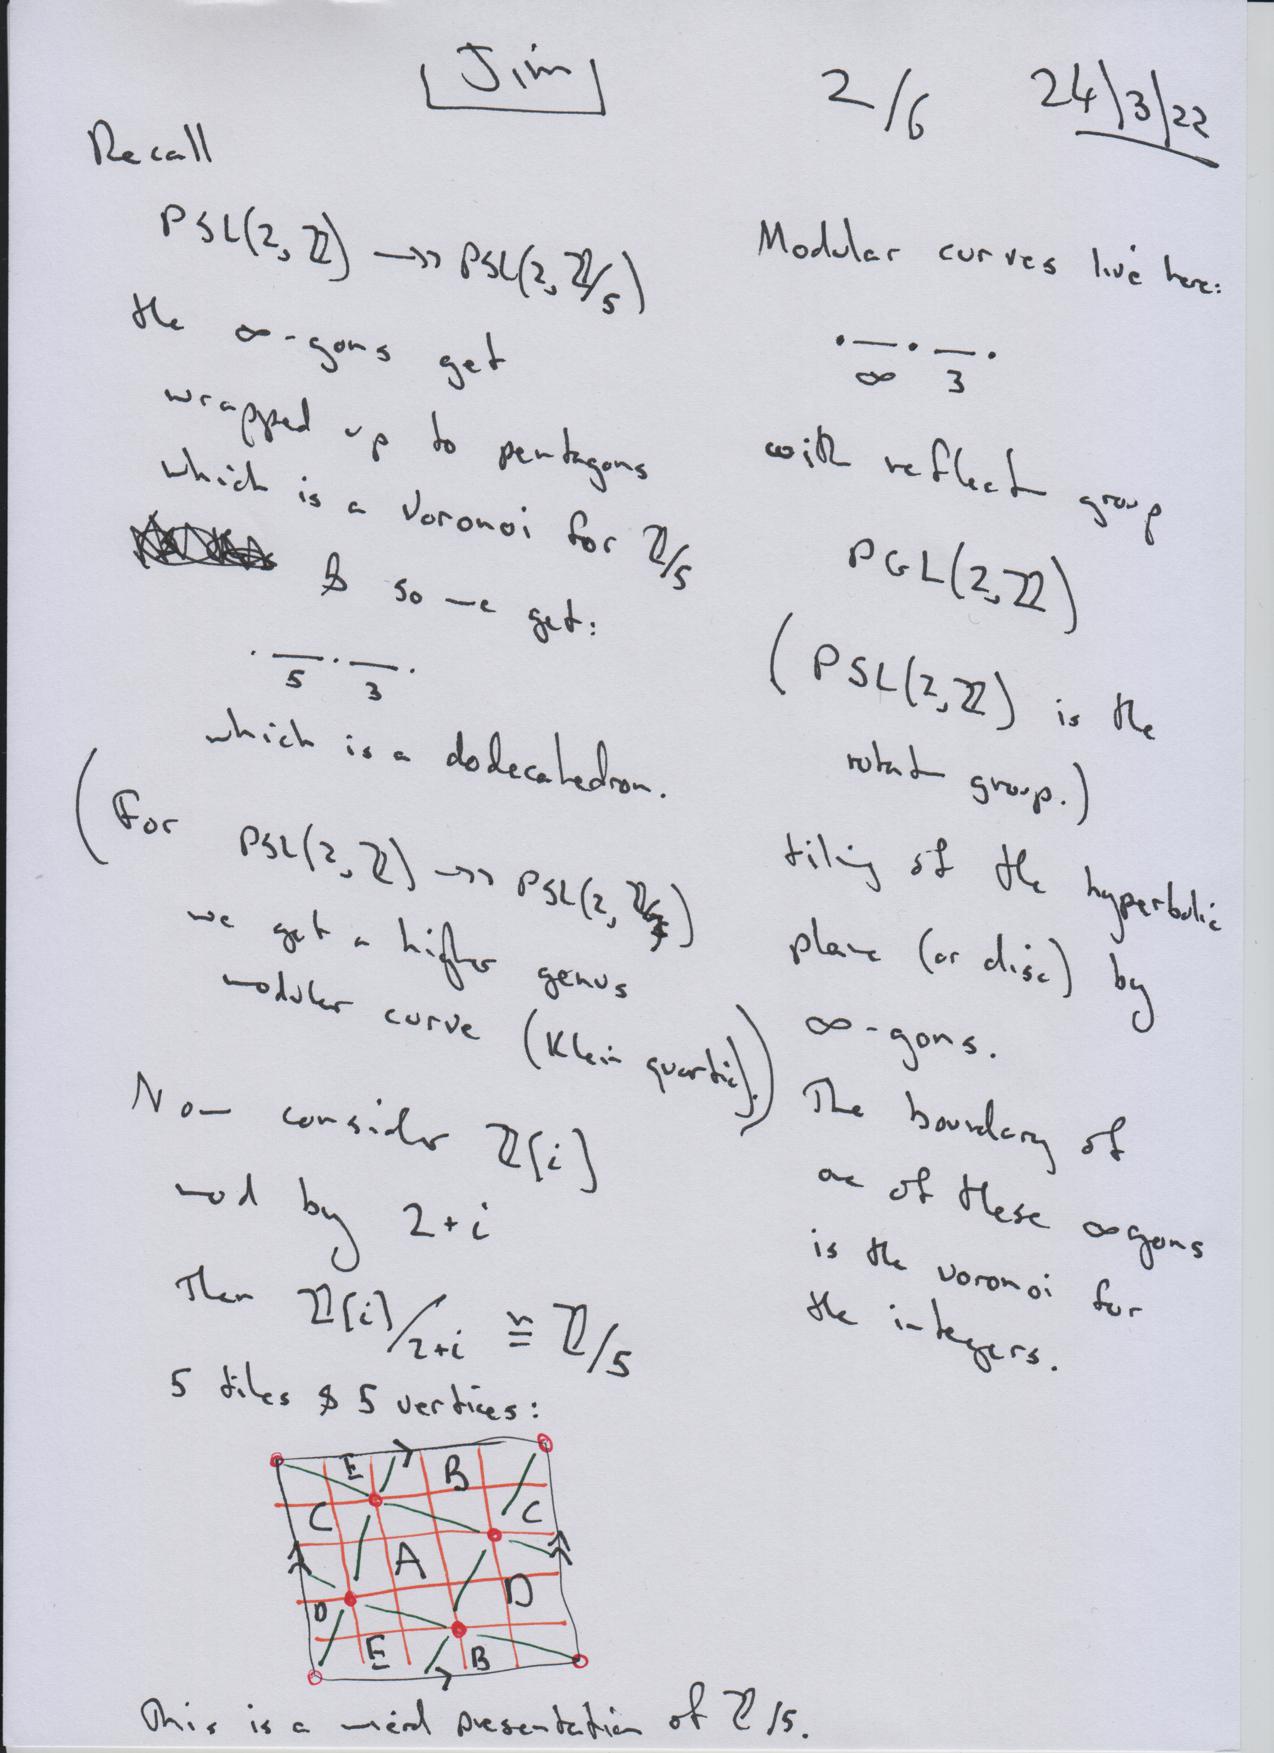 Jim
2/6
24/3/22
Recall
PSL(2, ℤ) ↠ PSL(2, ℤ/5)
the ∞-gons get
wrapped up to pentagons
which is a voronoi for ℤ/5
& so we get:
· — · — ·
5 3
which is a dodecahedron.
(For PSL(2, ℤ) ↠ PSL(2, ℤ/7)
we get a higher genus
modular curve (Klein quartic).)
Now consider ℤ[i]
mod by 2+i
Then ℤ[i]/2+i ≅ ℤ/5
5 tiles & 5 vertices:
E B
C C
A
D D
E B
This is a weird presentation of ℤ/5.
Modular curves live here:
· — · — ·
∞ 3
with reflect group
PGL(2, ℤ)
(PSL(2, ℤ) is the
rotat group.)
tiling of the hyperbolic
plane (or disc) by
∞-gons.
The boundary of
one of these ∞gons
is the voronoi for
the integers.